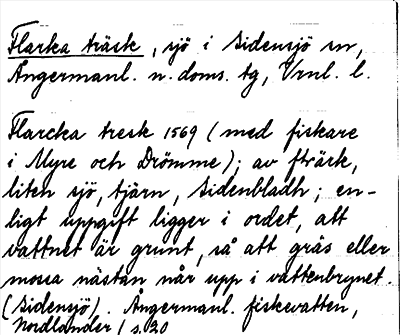 Flarka träsk, sjö i Sidensjö sn,
Ångermanl. n. doms. tg, Vrnl. l.
Flarcka tresk 1569 (med fiskare
i Myre och Drömme); av fträsk,
liten sjö, tjärn, Sidenbladh; en-
ligt uppgift ligger i ordet, att
vattnet är grunt, så att gräs eller
mossa nästan når upp i vattenbrynet.
(Sidensjö). Ångermanl. fiskevatten,
Nordlander, s. 30